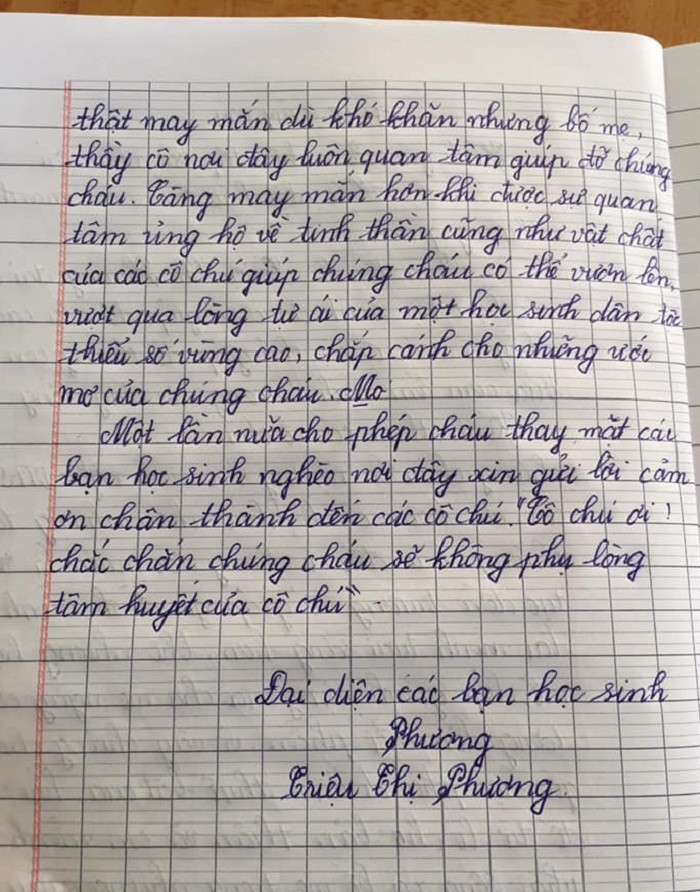 thật may mắn dù khó khăn nhưng bố mẹ,
thầy cô nơi đây luôn quan tâm giúp đỡ chúng
cháu. Càng may mắn hơn khi được sự quan
tâm ủng hộ về tinh thần cũng như vật chất
của các cô chú giúp chúng cháu có thể vươn lên,
vượt qua lòng tự ái của một học sinh dân tộc
thiểu số vùng cao, chắp cánh cho những ước
mơ của chúng cháu. Mo
Một lần nữa cho phép cháu thay mặt các
bạn học sinh nghèo nơi đây xin gửi lời cảm
ơn chân thành đến các cô chú. "Cô chú ơi!
chắc chắn chúng cháu sẽ không phụ lòng
tâm huyết của cô chú".
Đại diện các bạn học sinh
Phương
Triệu Thị Phương.